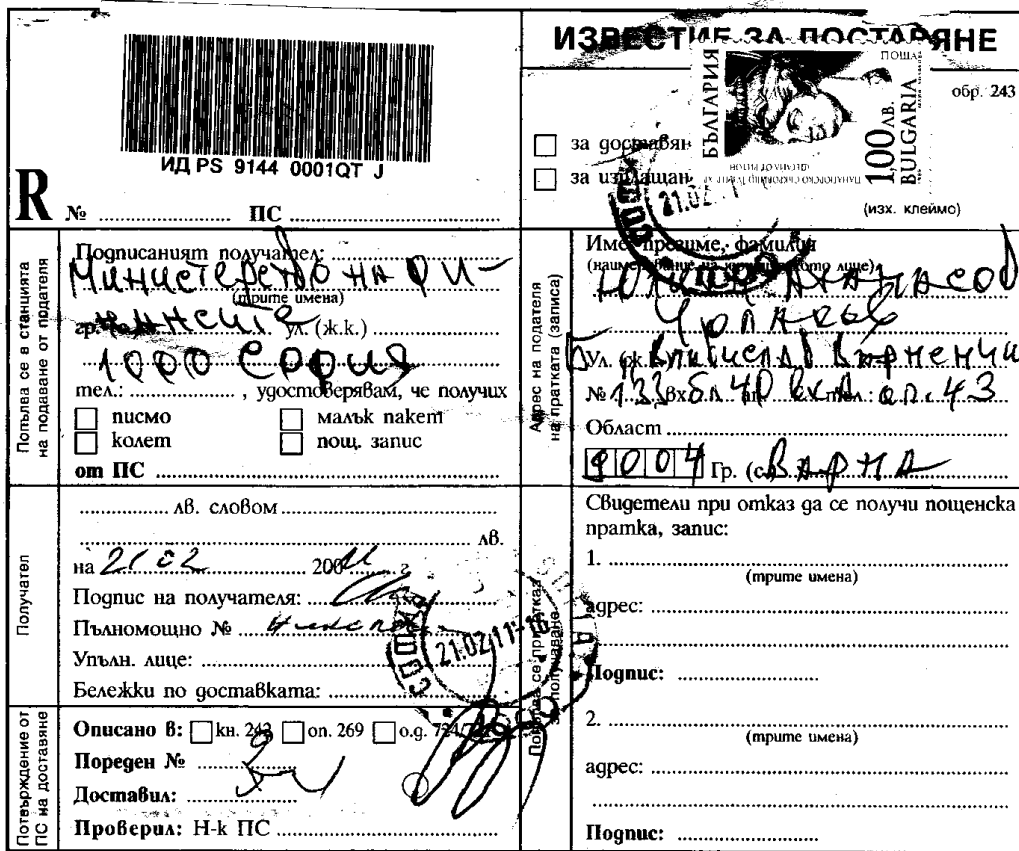 ИЗВЕСТИЕ ЗА ДОСТАВЯНЕ
обр. 243
ИД PS 9144 0001QT J
R № ПС
за доставян
за изплащан
БЪЛГАРИЯ
ПОЩА
1,00 лв.
BULGARIA
21.02
(изх. клеймо)
Попълва се в станцията на подаване от подателя
Подписаният получател:
Министерство на фи-
(трите имена)
нансите
гр. ул. (ж.к.)
1000 София
тел.: , удостоверявам, че получих
писмо малък пакет
колет пощ. запис
от ПС
Адрес на подателя на пратката (записа)
Име, презиме, фамилия
(наименование на юридическото лице)
Атанасов
Чолаков
Ул. (ж.к.) Владислав Варненчик
№ 133 вх. бл. 40 вх. А тел.: ап. 43
Област
9004 Гр. (с.) ВАРНА
Получател
лв. словом
лв.
на 21 02 2011 г.
Подпис на получателя:
Пълномощно №
Упълн. лице:
Бележки по доставката:
21.02.11-16
СОФИЯ
Попълва се при отказ за получаване
Свидетели при отказ да се получи пощенска
пратка, запис:
1.
(трите имена)
адрес:
Подпис:
2.
(трите имена)
адрес:
Подпис:
Потвърждение от ПС на доставяне
Описано в: кн. 243 оп. 269 о.д. 724/
Пореден №
Доставил:
Проверил: Н-к ПС